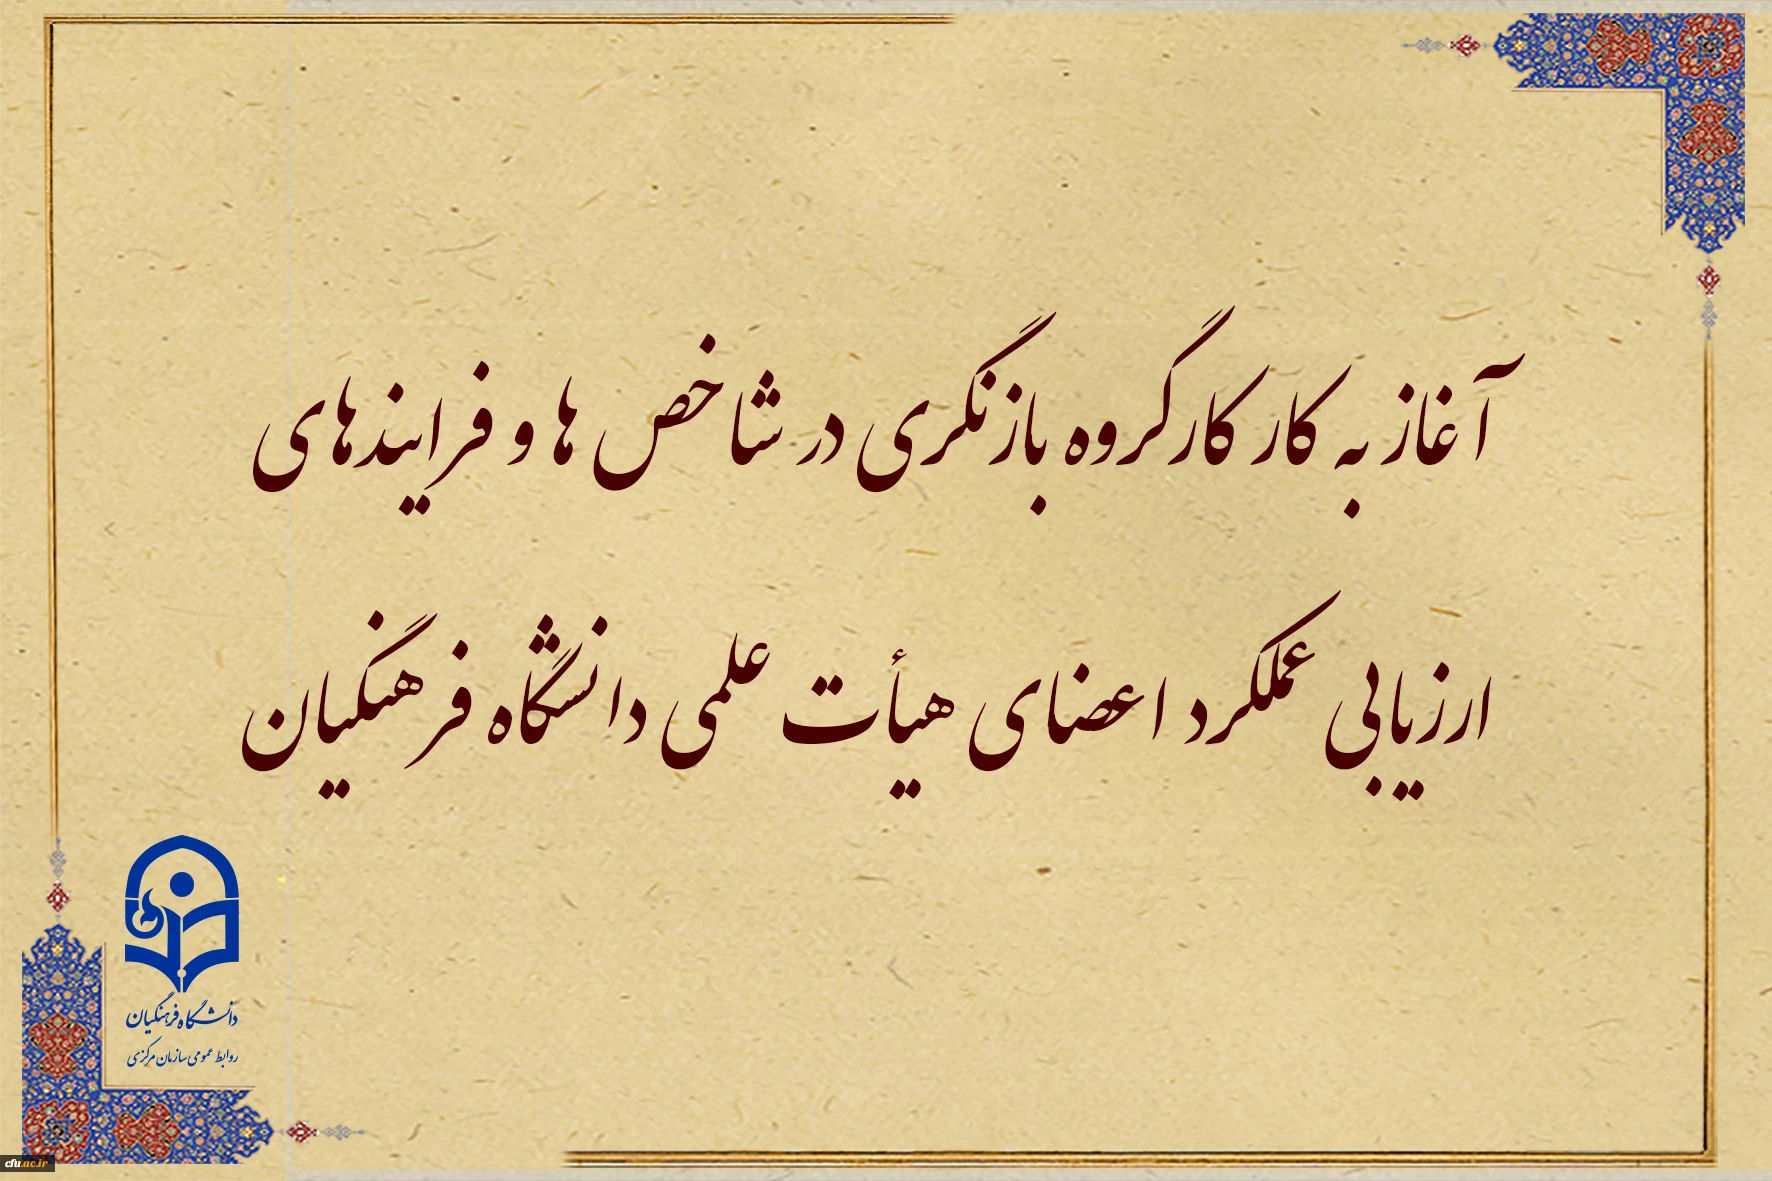 آغاز به کار کارگروه بازنگری در شاخص ها و فرایندهای
ارزیابی عملکرد اعضای هیأت علمی دانشگاه فرهنگیان
دانشگاه فرهنگیان
روابط عمومی سازمان مرکزی
cfu.ac.ir